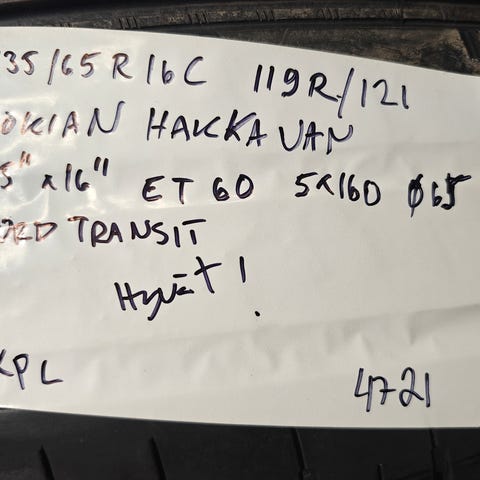 35/65R16C 119R/121
OKIAN HAKKA VAN
5" x 16" ET 60 5x160 Ø65
RD TRANSIT
Hyvät!
KPL 4721